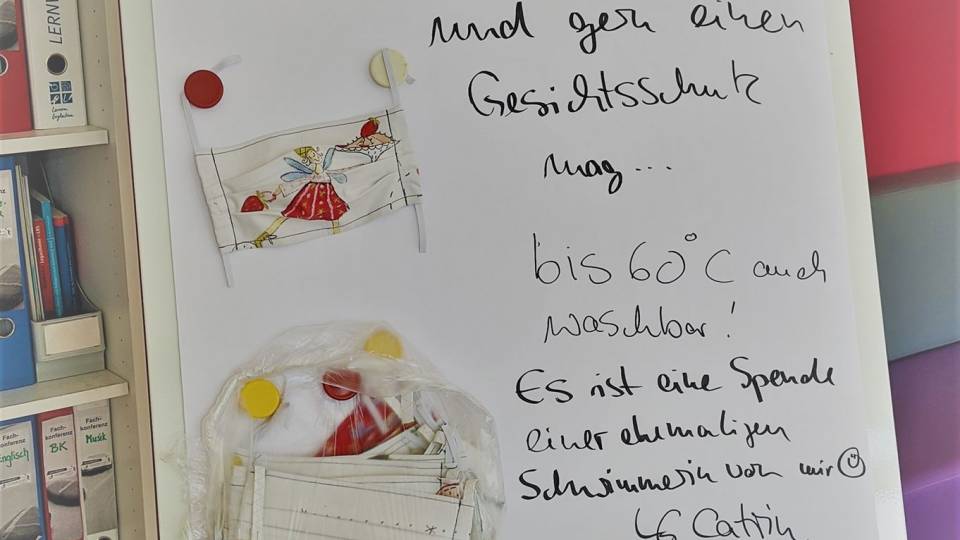 und gern einen
Gesichtsschutz
mag...
bis 60°C auch
waschbar!
Es ist eine Spende
einer ehemaligen
Schwimmerin von mir
LG Catrin
LERNE
Lernen
begleiten
Fach-
konferenz
Englisch
Fach-
konferenz
BK
Fach-
konferenz
Musik